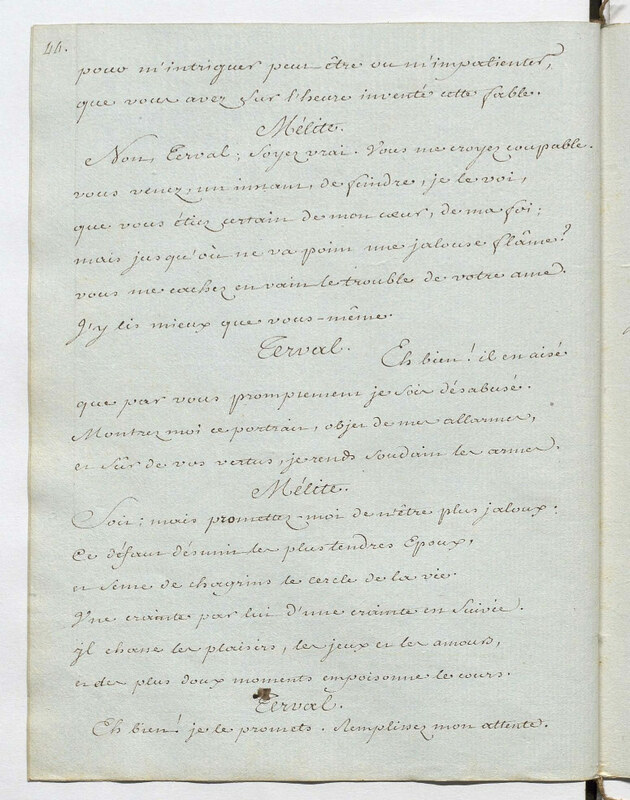 44.
pour m'intriguer peut être ou m'impatienter,
que vous avez sur l'heure inventé cette fable.
Mélite.
Non, Terval; soyez vrai. Vous me croyez coupable.
vous venez, un instant, de feindre, je le voi,
que vous étiez certain de mon cœur, de ma foi;
mais jusqu'où ne va point une jalouse flâme?
vous me cachez en vain le trouble de votre ame.
J'y lis mieux que vous-même.
Terval.
Eh bien! il est aisé
que par vous promptement je sois désabusé.
Montrez moi ce portrait, objet de mes allarmes,
et sûr de vos vertus, je rends soudain les armes.
Mélite.
Soit; mais promettez-moi de n'être plus jaloux:
Ce défaut désunit les plus tendres Epoux,
et seme de chagrins le cercle de la vie.
Une crainte par lui d'une crainte est suivie.
il chasse les plaisirs, les jeux et les amours,
et des plus doux moments empoisonne le cours.
Terval.
Eh bien! je le promets. Remplissez mon attente.